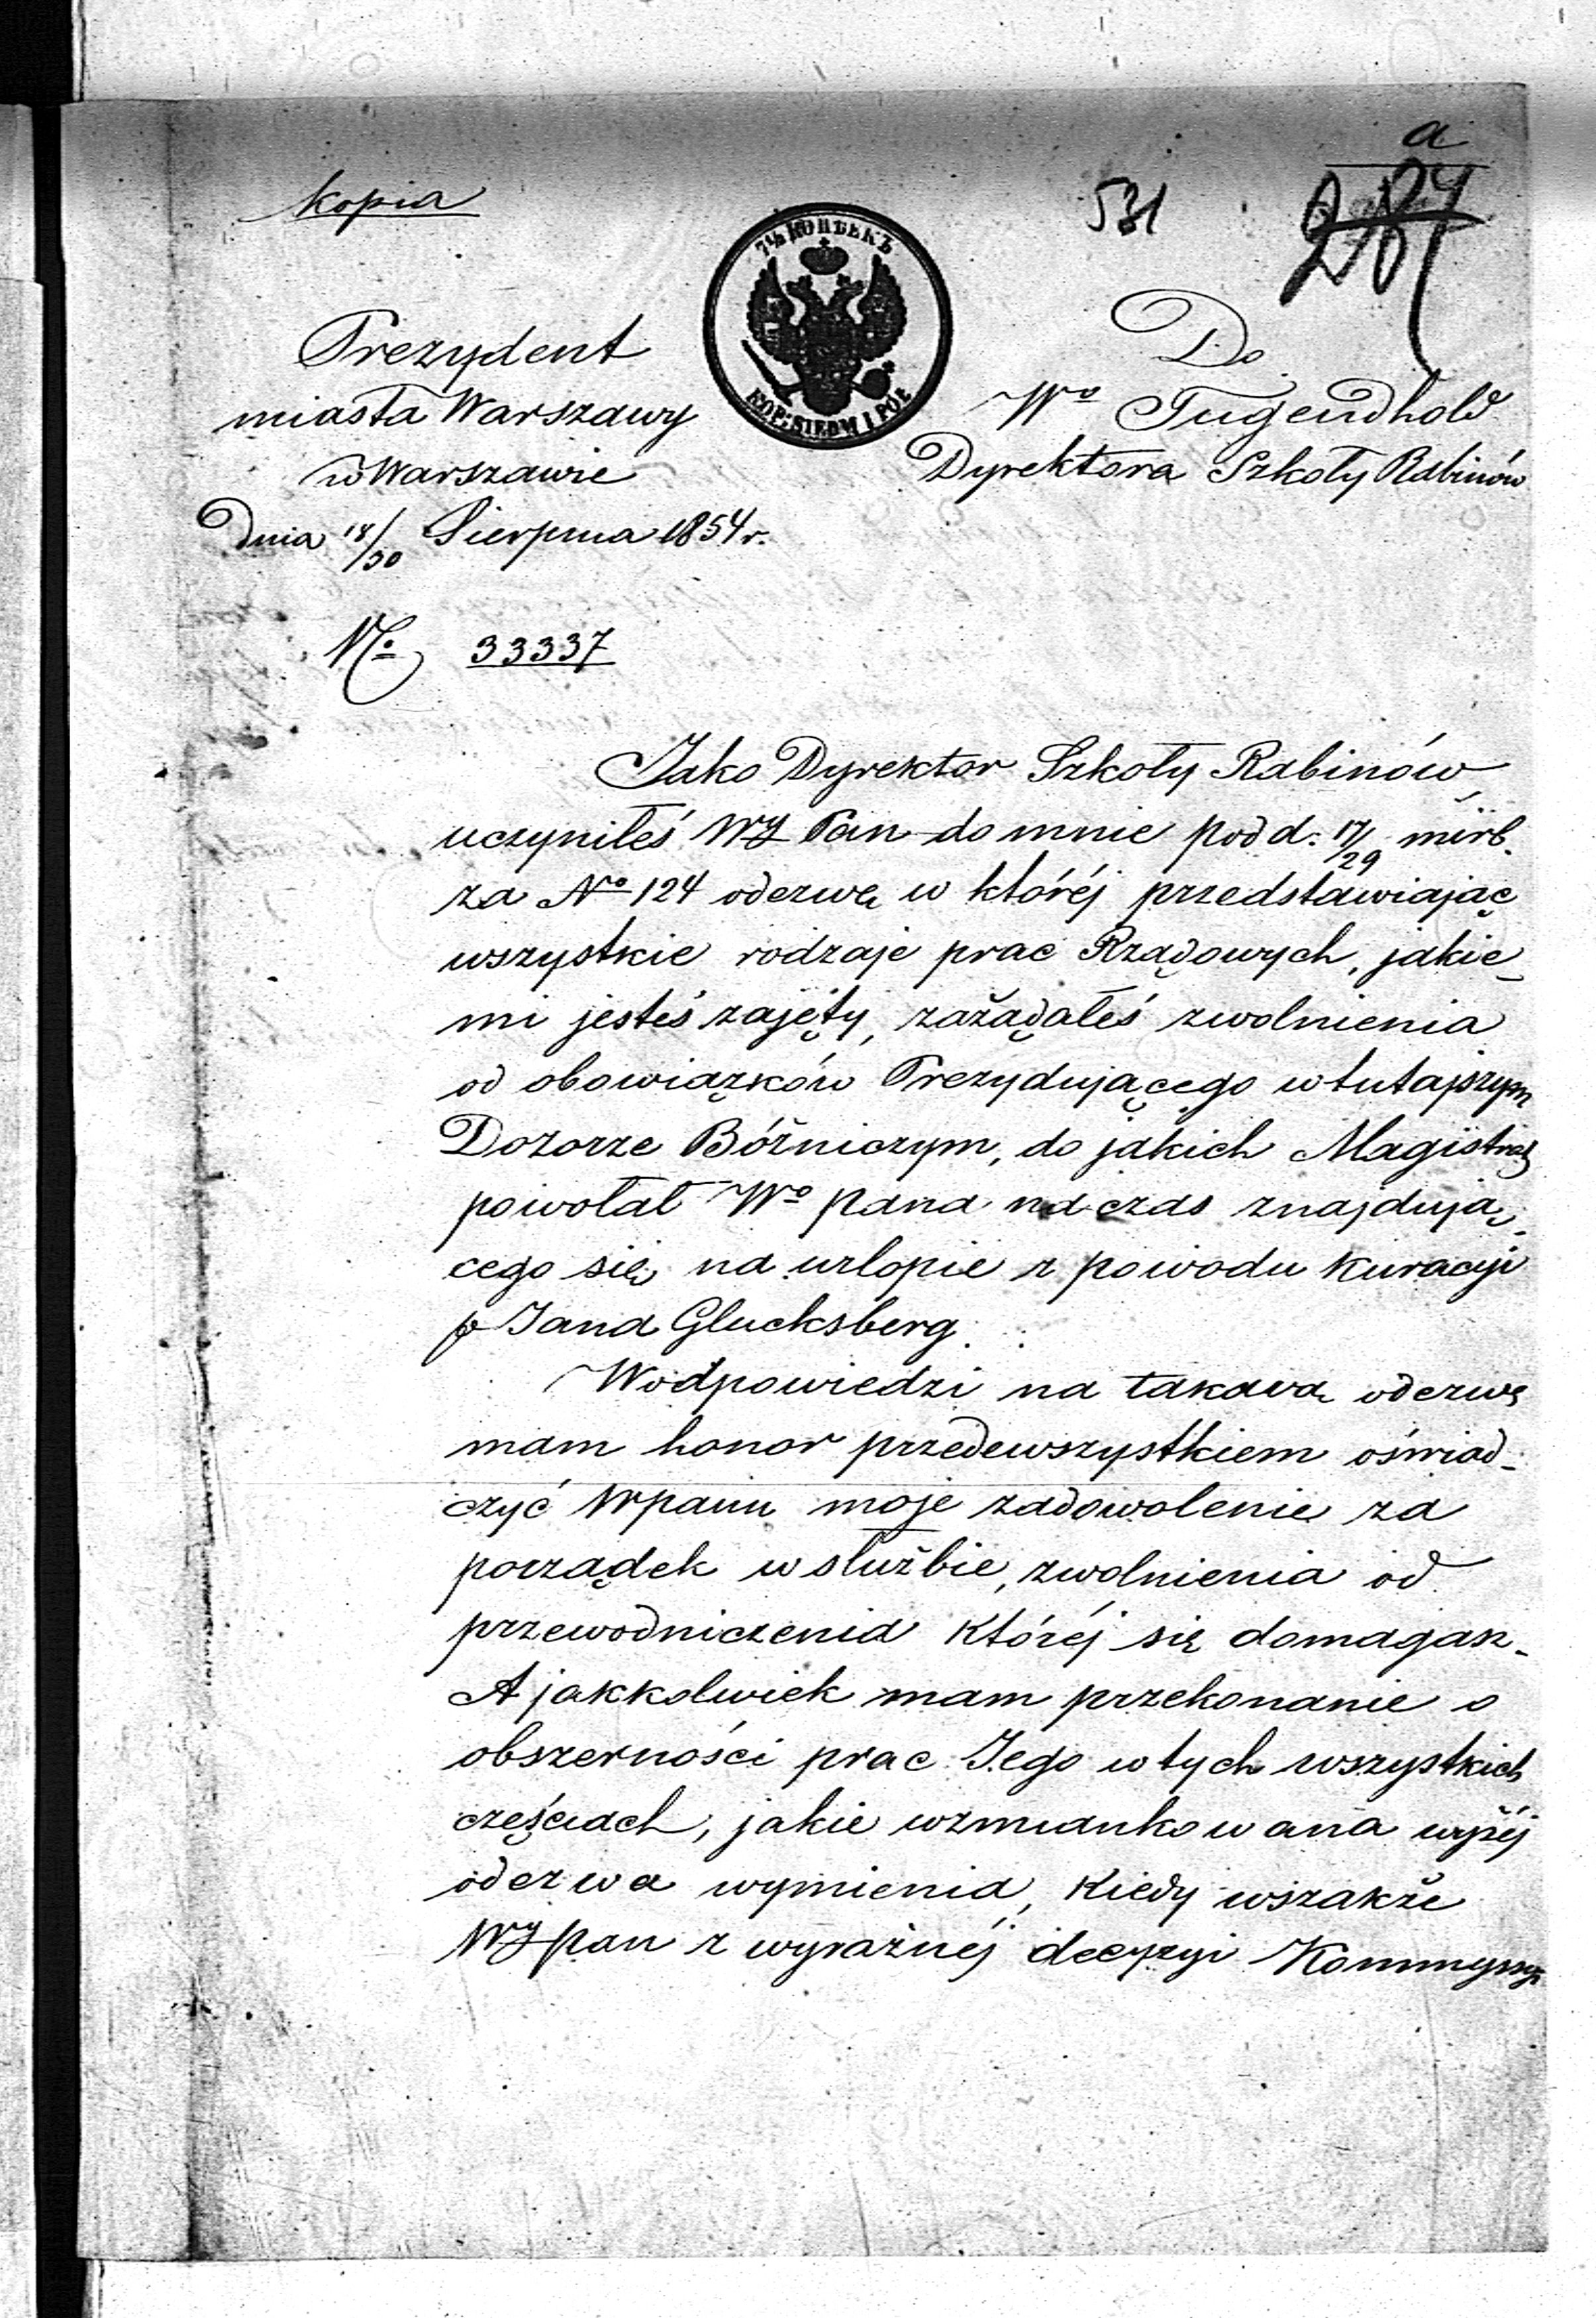 kopia
531
a
284
7½ КОПѢЕКЪ
KOP: SIEDM I PÓŁ
Prezydent
miasta Warszawy
w Warszawie
Dnia 18/30 Sierpnia 1854 r.
No 33337
Do
Wo Tugendhold
Dyrektora Szkoły Rabinów
Jako Dyrektor Szkoły Rabinów
uczyniłeś WJ Pan do mnie pod d: 17/29 m i r b.
za No 124 odezwę w któréj przedstawiając
wszystkie rodzaje prac Rządowych, jakie_
mi jesteś zajęty, zażądałeś zwolnienia
od obowiązków Prezydującego w tutajszym
Dozorze Bóżniczym, do jakich Magistrat
powołał Wo pana na czas znajdują_
cego się na urlopie z powodu kuracyi
p Jana Glucksberg.
W odpowiedzi na takową odezwę
mam honor przedewszystkiem oświad_
czyć Wpanu moje zadowolenie za
porządek w służbie, zwolnienia od
przewodniczenia któréj się domagasz_
A jakkolwiek mam przekonanie o
obszerności prac Jego w tych wszystkich
częściach, jakie wzmiankowana wyżéj
odezwa wymienia, kiedy wszakże
WJ pan z wyraźnéj decyzyi Kommyssyi